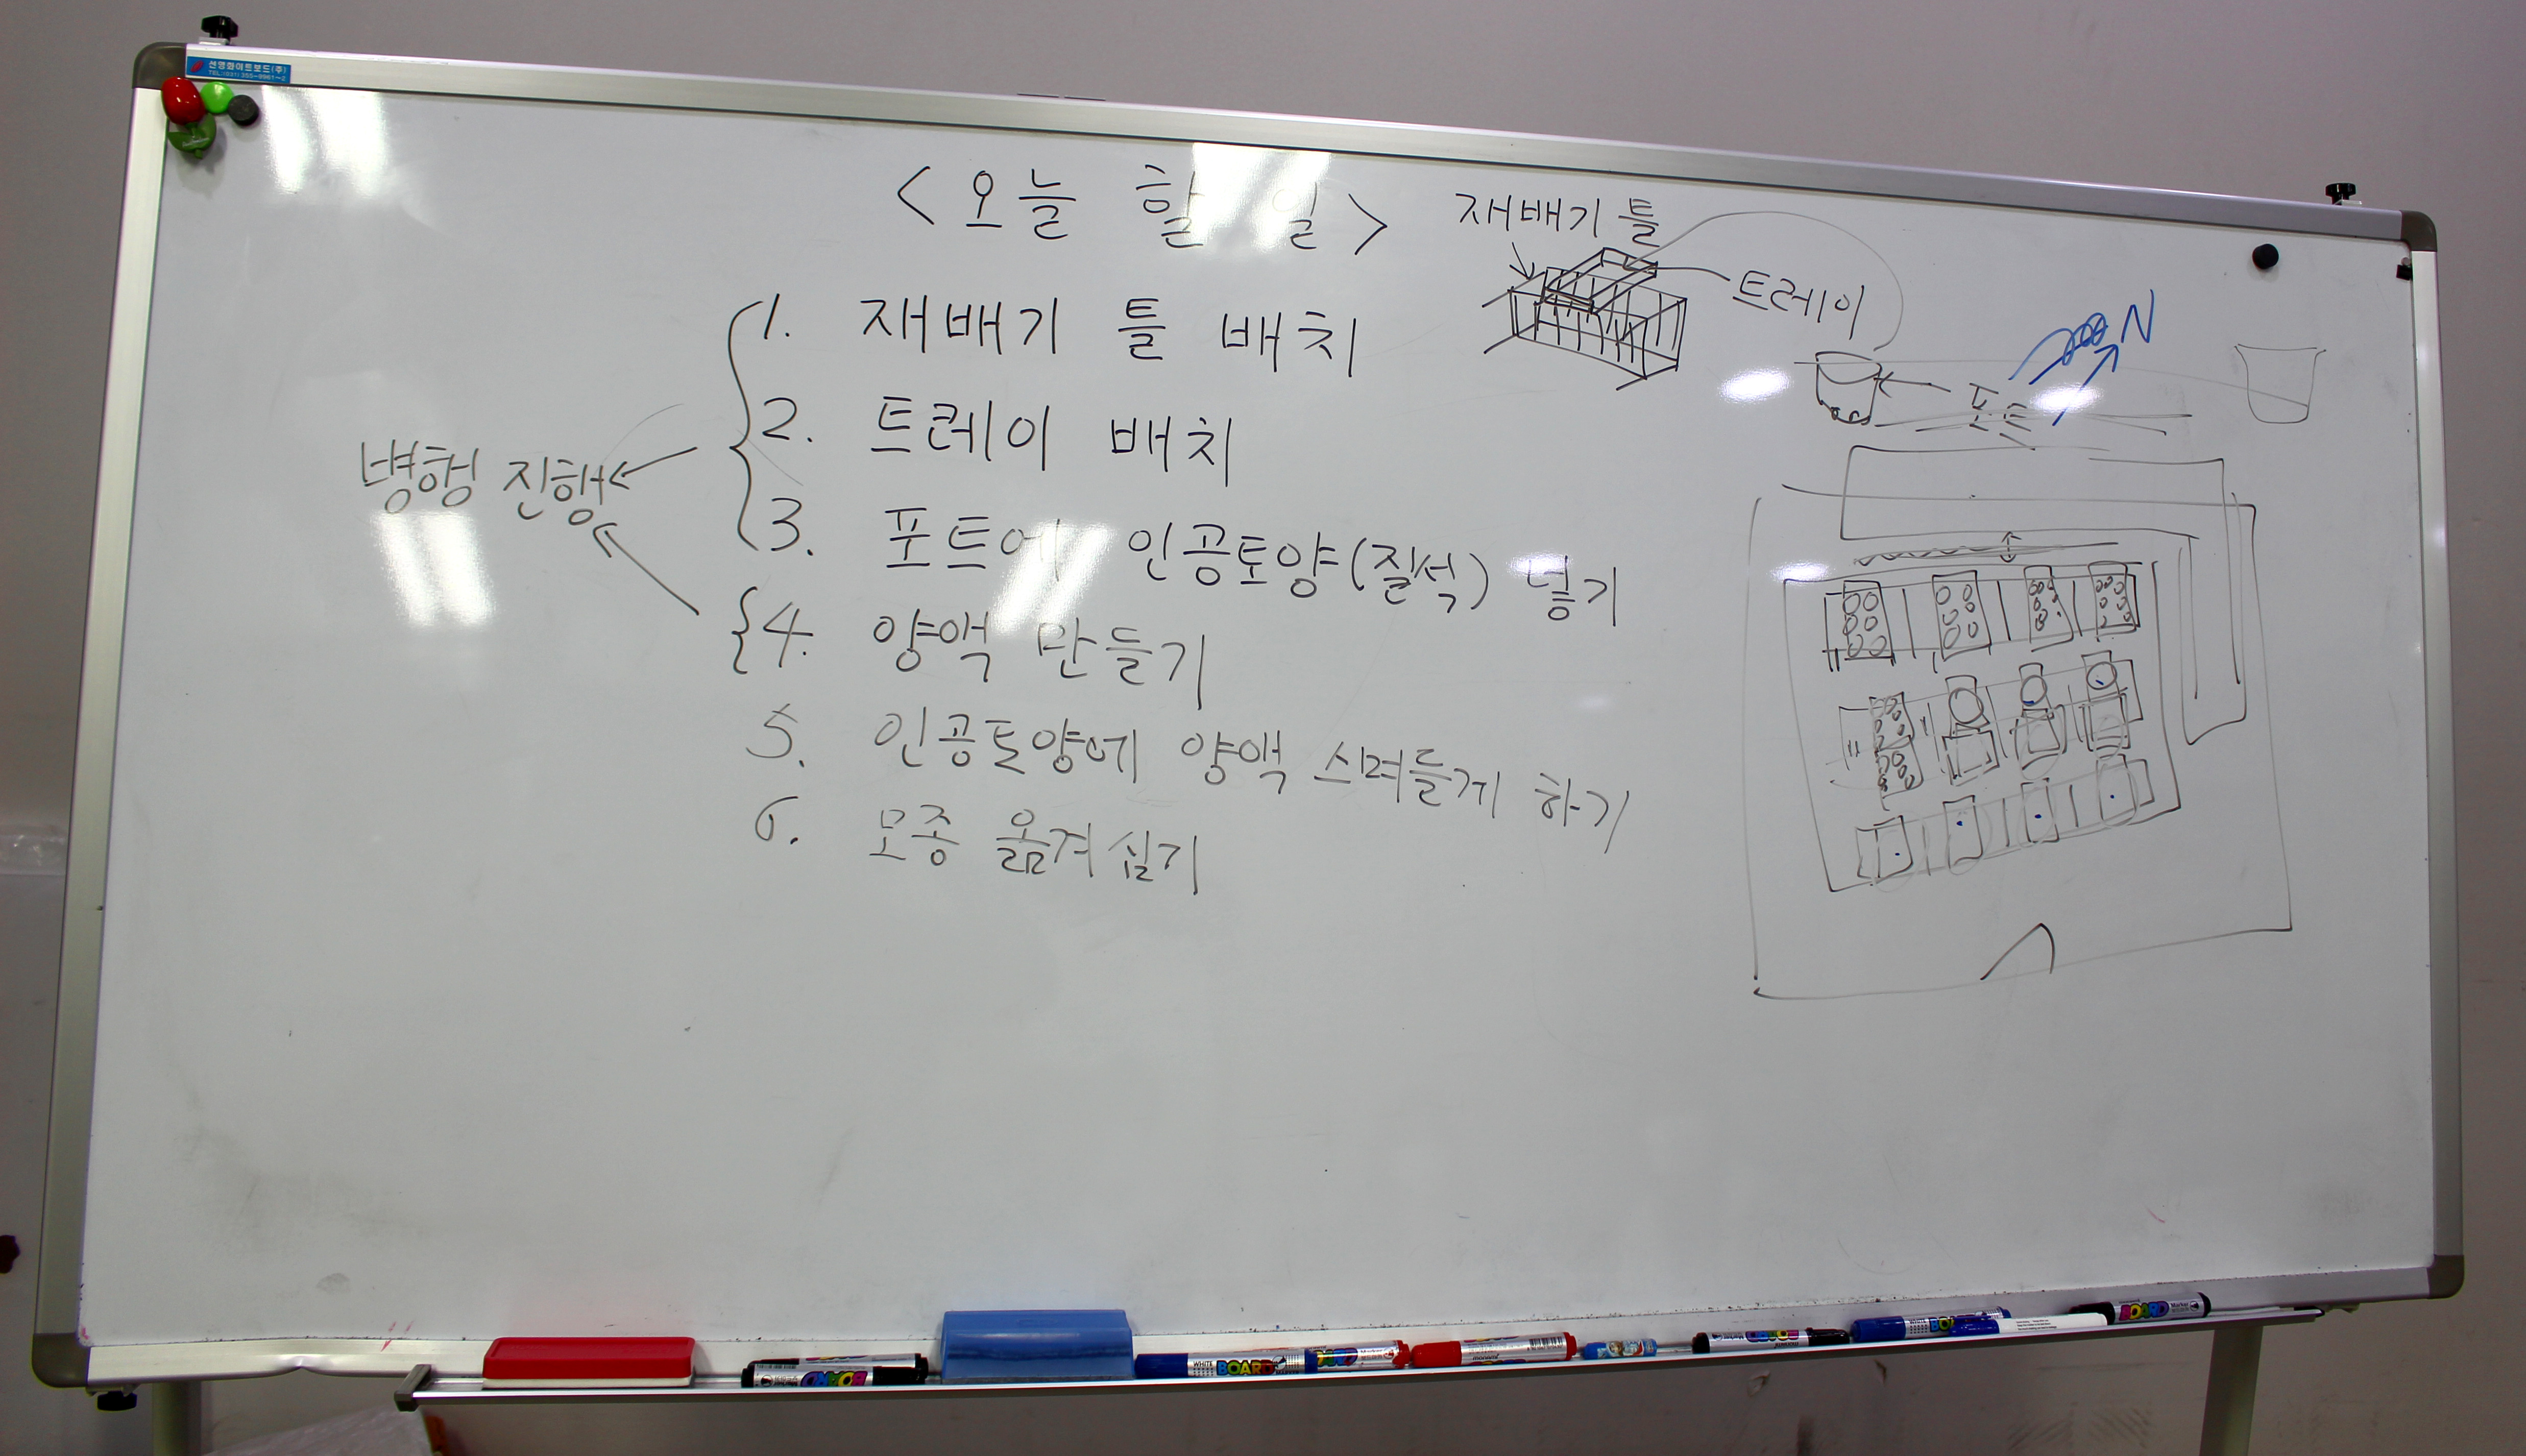 선영화이트보드(주)
TEL:(031)355-8961~2
<오늘 할 일>
1. 재배기 틀 배치
2. 트레이 배치
3. 포트에 인공토양(질석) 넣기
4. 양액 만들기
5. 인공토양에 양액 스며들게 하기
6. 모종 옮겨심기
병행 진행
재배기 틀
트레이
포트
N
WHITE BOARD
BOARD
BOARD
BOARD Marker